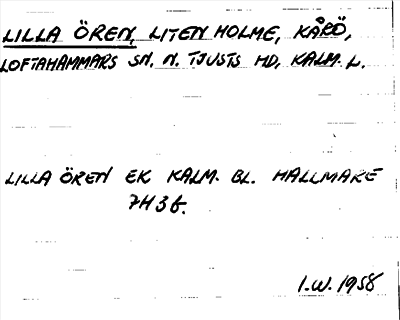 LILLA ÖREN, LITEN HOLME, KÅRÖ,
LOFTAHAMMARS SN. N. TJUSTS HD, KALM. L.
LILLA ÖREN EK KALM. BL. HALLMARE
7H 3f.
I.W. 1958